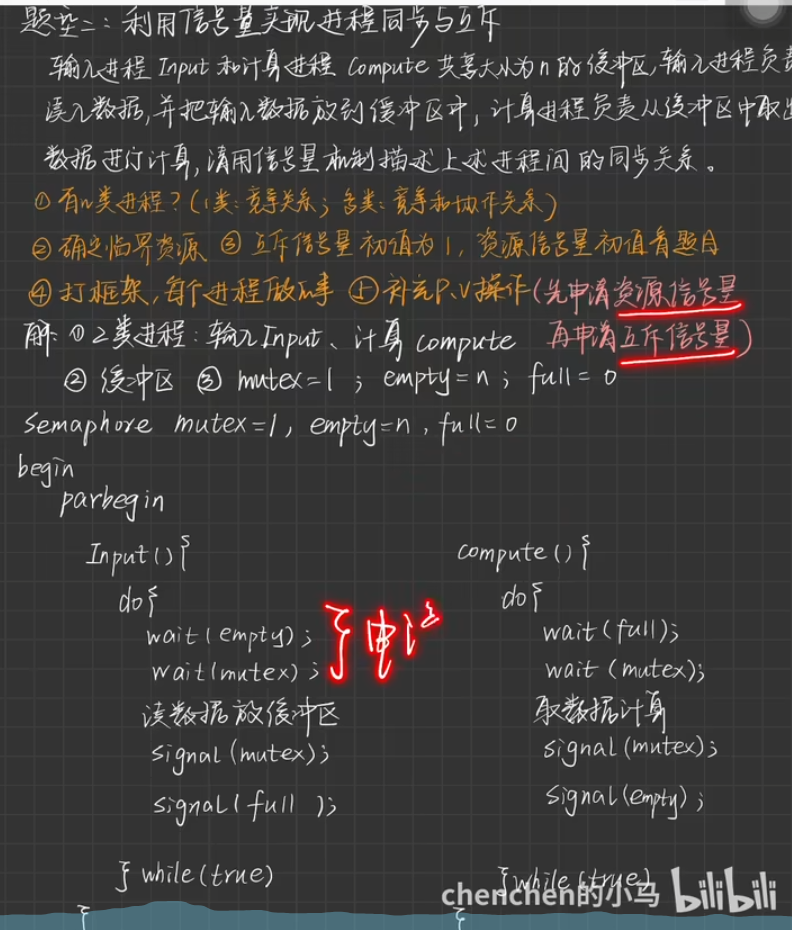 题型二：利用信号量实现进程同步与互斥
输入进程 Input 和计算进程 Compute 共享大小为 n 的缓冲区,输入进程负责
读入数据,并把输入数据放到缓冲区中，计算进程负责从缓冲区中取出
数据进行计算,请用信号量机制描述上述进程间的同步关系。
① 有几类进程？(1类:竞争关系；多类:竞争和协作关系)
② 确定临界资源 ③ 互斥信号量初值为1，资源信号量初值看题目
④ 打框架,每个进程做的事 ⑤ 补充P、V操作(先申请资源信号量
再申请互斥信号量)
解：① 2类进程：输入Input、计算 compute
② 缓冲区 ③ mutex=1；empty=n；full=0
Semaphore mutex=1, empty=n, full=0
begin
parbegin
Input(){
compute(){
do{
do{
wait(empty);
wait(full);
wait(mutex);
wait(mutex);
读数据放缓冲区
取数据计算
signal(mutex);
signal(mutex);
signal(full);
signal(empty);
}while(true)
}while(true)
}
}
chenchen的小马 bilibili